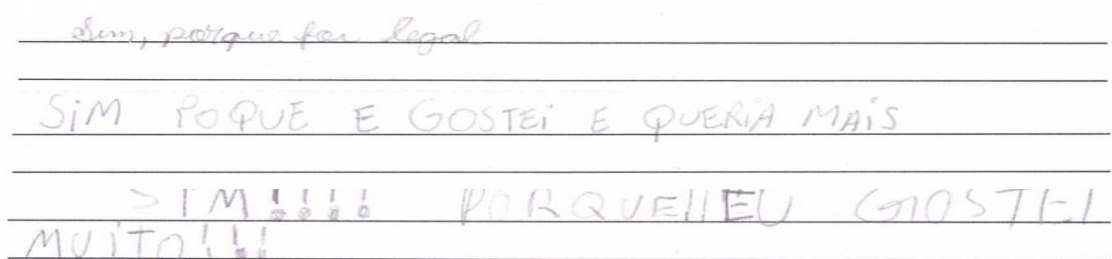 Sim, porque foi legal
SiM POQUE E GOSTEi E QUERiA MAiS
SIM!!!! PORQUE!!EU GOSTEI
MUiTO!!!